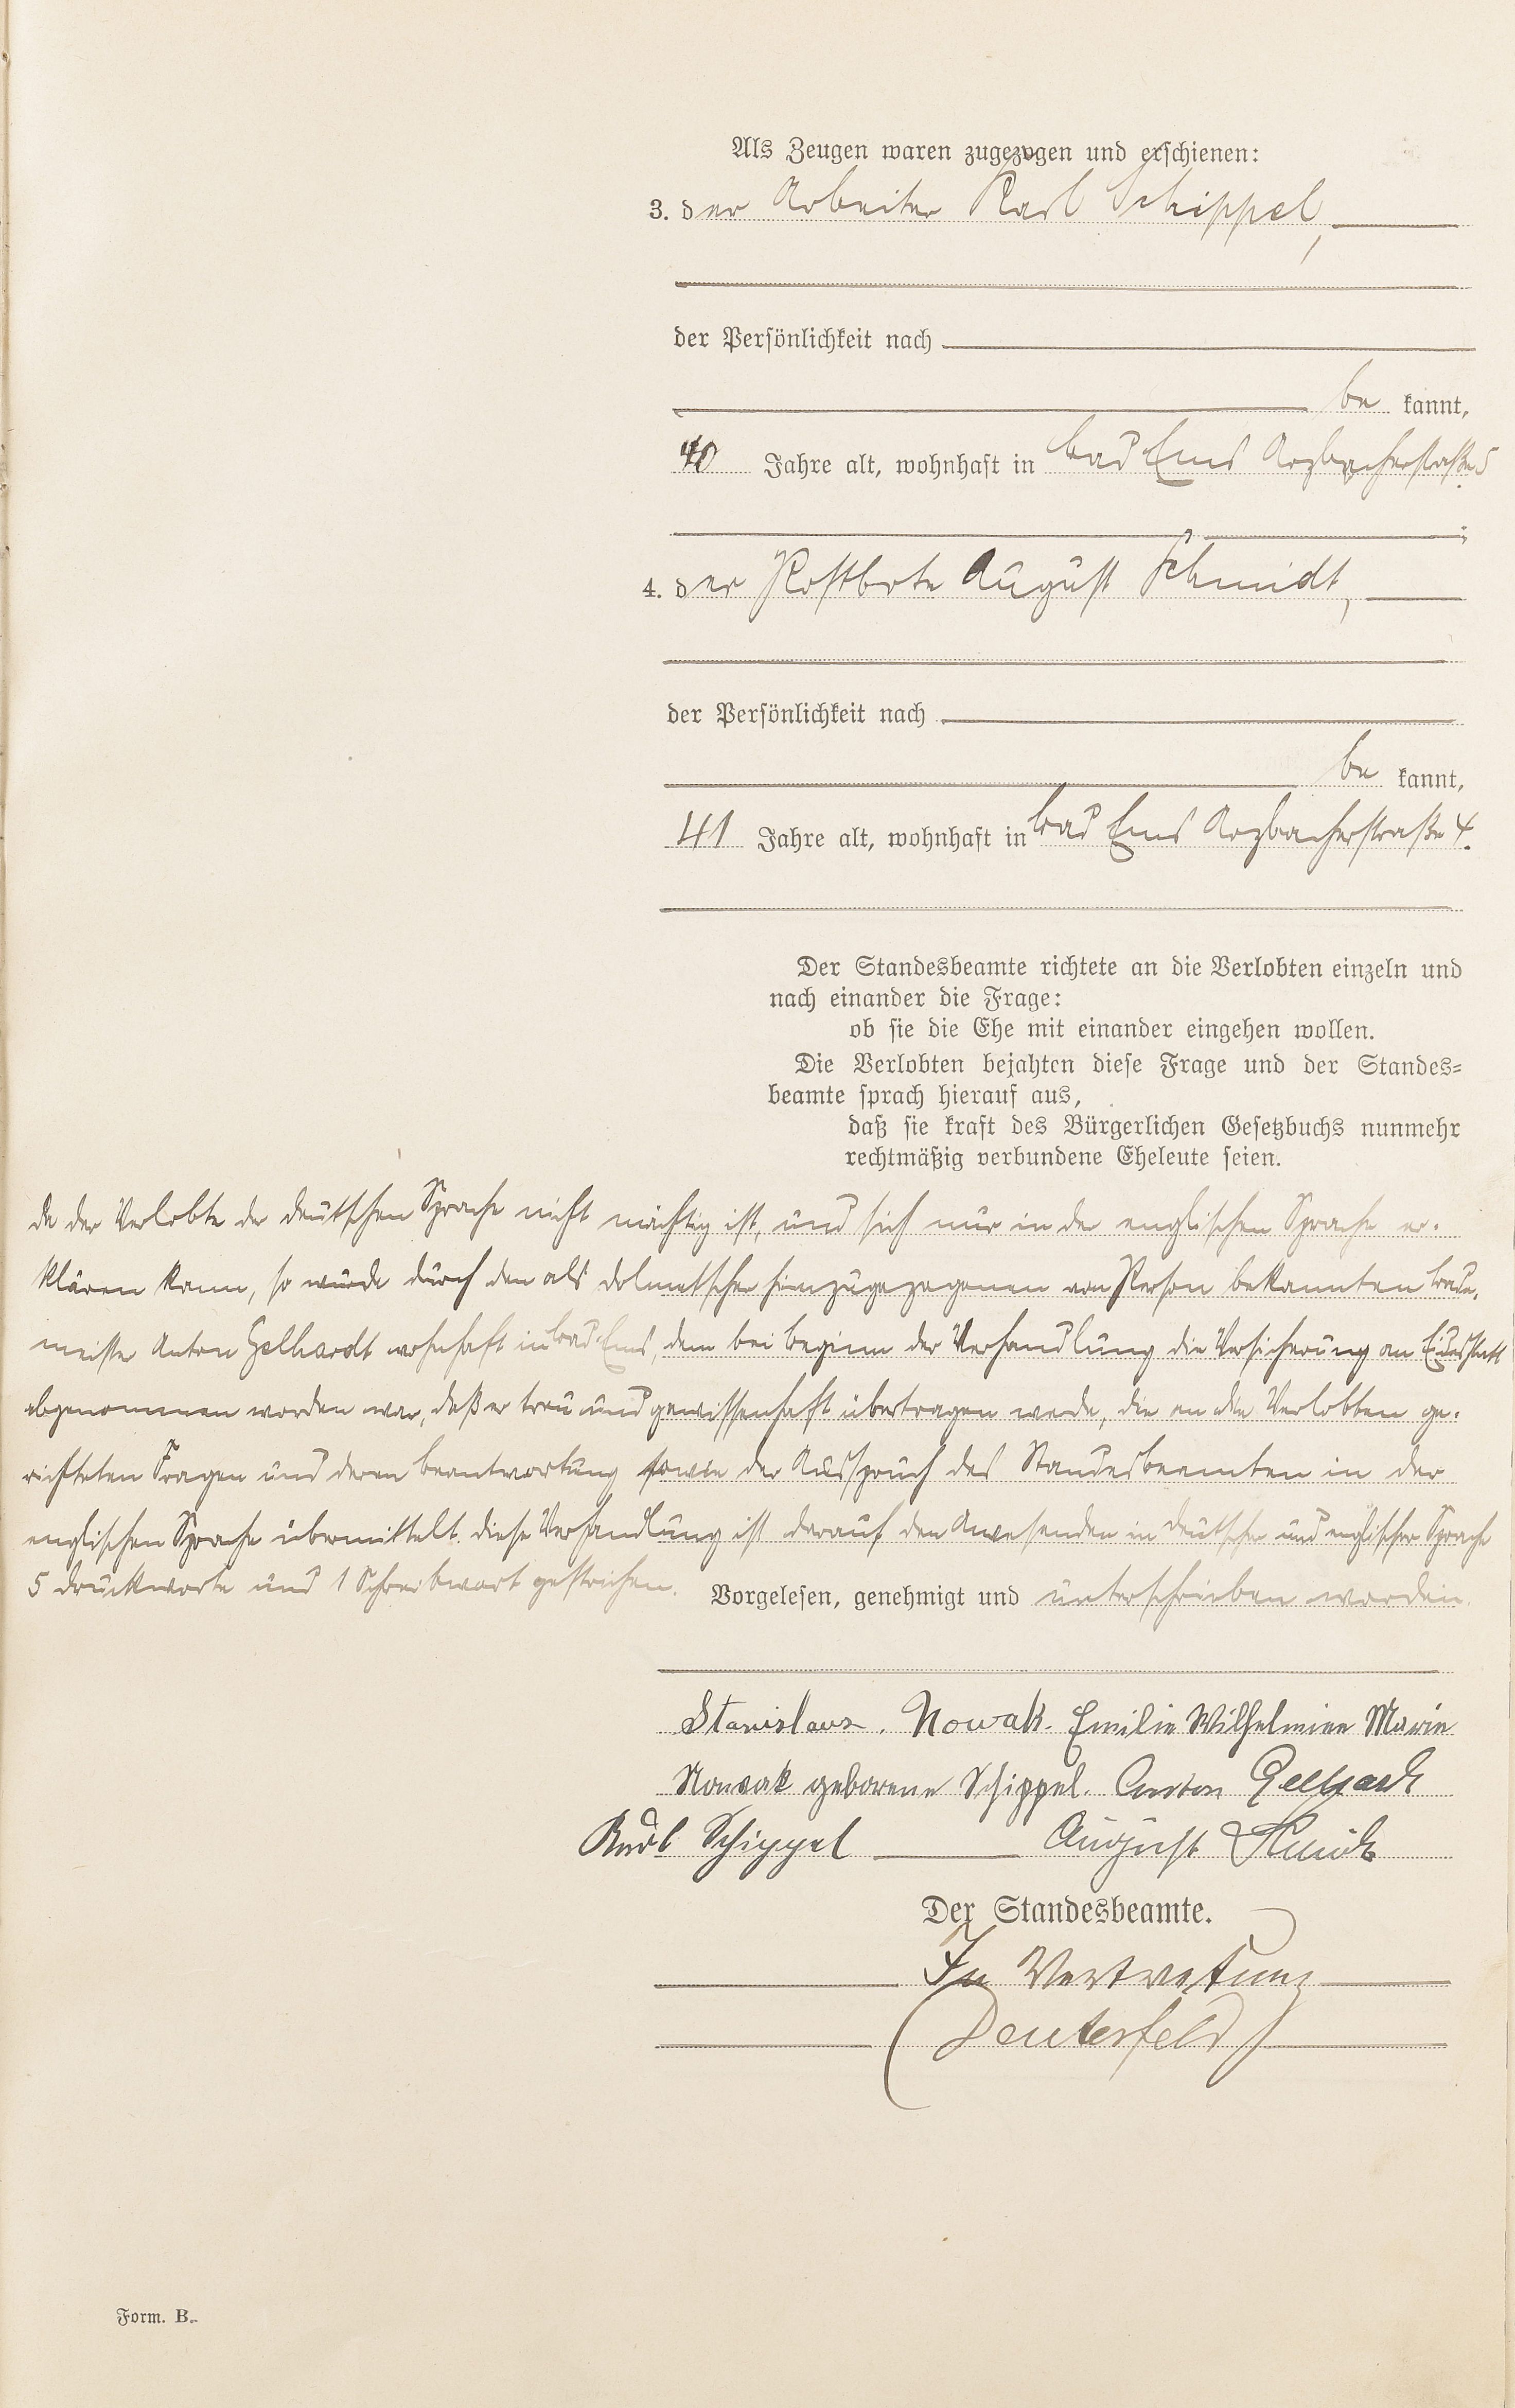 Als Zeugen waren zugezogen und erschienen:
3. der Arbeiter Karl Schippel,
der Persönlichkeit nach
be kannt,
40 Jahre alt, wohnhaft in Bad Ems Arzbacherstraße 5
;
4. der Postbote August Schmidt,
der Persönlichkeit nach
be kannt,
41 Jahre alt, wohnhaft in Bad Ems Arzbacherstraße 4.
Der Standesbeamte richtete an die Verlobten einzeln und
nach einander die Frage:
ob sie die Ehe mit einander eingehen wollen.
Die Verlobten bejahten diese Frage und der Standes=
beamte sprach hierauf aus,
daß sie kraft des Bürgerlichen Gesetzbuchs nunmehr
rechtmäßig verbundene Eheleute seien.
da der Verlobte der deutschen Sprache nicht mächtig ist, und sich nur in der englischen Sprache er-
klären kann, so wurde durch den als dolmetscher hinzugezogenen von Person bekannten Bade-
meister Anton Gelhardt wohnhaft in Bad-Ems, dem bei Beginn der Verhandlung die Versicherung an Eidesstatt
abgenommen worden war, daß er treu und gewissenhaft übertragen werde, die an die Verlobten ge-
richteten Fragen und deren Beantwortung sowie der Ausspruch des Standesbeamten in der
englischen Sprache übermittelt. diese Verhandlung ist darauf den Anwesenden in deutscher und englischer Sprache
5 druckworte und 1 Schreibwort gestrichen. Vorgelesen, genehmigt und unterschrieben worden.
Stanislaus. Nowak. Emilie Wilhelmine Marie
Nowak geborene Schippel. Anton Gelhardt
Karl Schippel August Schmidt
Der Standesbeamte.
In Vertretung
Deutesfeld
Form. B.